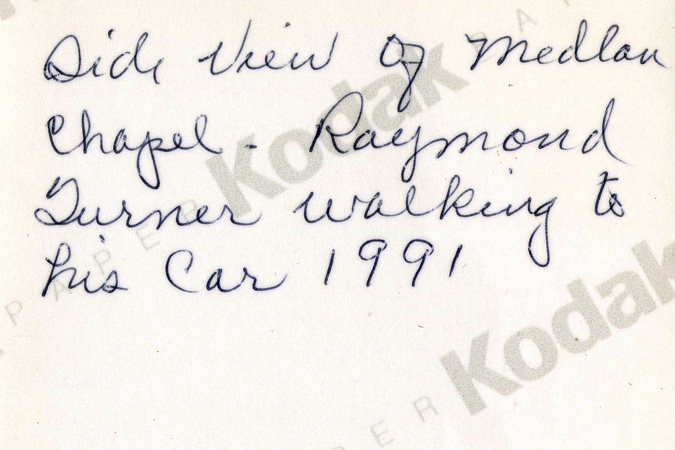 Side View Of Medlau
Chapel - Raymond
Turner walking to
his Car 1991
Kodak
PAPER
Kodak
PAPER